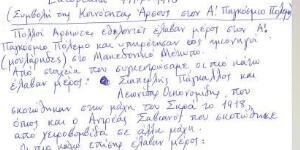 (Συμβολή της Κοινότητας Άρσους στον Α' Παγκόσμιο Πόλεμο
Πολλοί Αρσιώτες εθελοντές έλαβαν μέρος στον Α'.
Παγκόσμιο Πόλεμο και υπηρέτησαν ως ημιονηγοί
(μουλάρηδες) στο Μακεδονικό Μέτωπο.
Από στοιχεία που συγκεντρώσαμε οι πιο κάτω
έλαβαν μέρος: Παγκαλλος και
Λεωνίδας Οικονομίδης, που
σκοτώθηκαν στην μάχη του Σκρα το 1918,
όπως και ο Ανδρέας Σαββανού που σκοτώθηκε
από χειροβομβίδα σε άλλη μάχη.
Οι πιο κάτω επίσης έλαβαν μέρος: